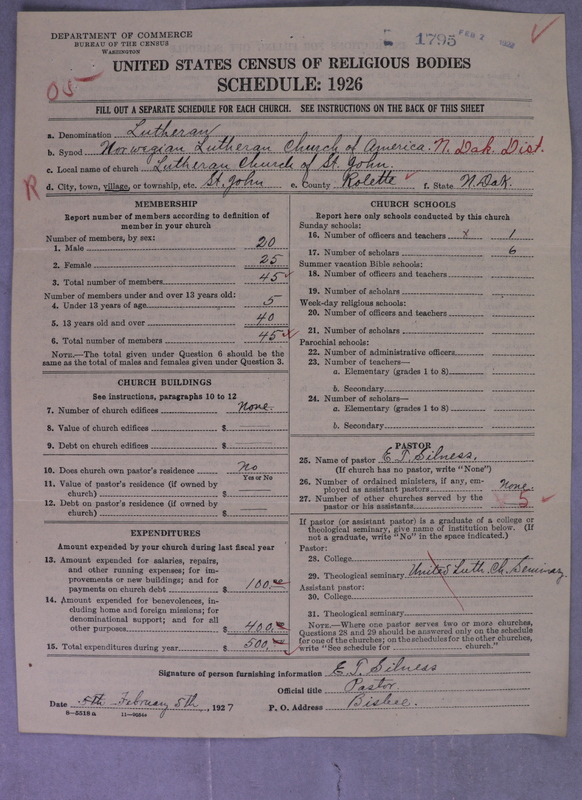 DEPARTMENT OF COMMERCE
BUREAU OF THE CENSUS
WASHINGTON
1795 FEB 7
UNITED STATES CENSUS OF RELIGIOUS BODIES
SCHEDULE: 1926
FILL OUT A SEPARATE SCHEDULE FOR EACH CHURCH. SEE INSTRUCTIONS ON THE BACK OF THIS SHEET
a. Denomination Lutheran
b. Synod Norwegian Lutheran Church of America. N. Dak. Dist.
c. Local name of church Lutheran Church of St. John.
R d. City, town, village, or township, etc. St. John e. County Rolette f. State N. Dak.
MEMBERSHIP
Report number of members according to definition of
member in your church
Number of members, by sex:
1. Male 20
2. Female 25
3. Total number of members 45
Number of members under and over 13 years old:
4. Under 13 years of age 5
5. 13 years old and over 40
6. Total number of members 45
NOTE.—The total given under Question 6 should be the
same as the total of males and females given under Question 3.
CHURCH BUILDINGS
See instructions, paragraphs 10 to 12
7. Number of church edifices None.
8. Value of church edifices $
9. Debt on church edifices $
10. Does church own pastor's residence No
Yes or No
11. Value of pastor's residence (if owned by
church) $
12. Debt on pastor's residence (if owned by
church) $
EXPENDITURES
Amount expended by your church during last fiscal year
13. Amount expended for salaries, repairs,
and other running expenses; for im-
provements or new buildings; and for
payments on church debt $ 100.00
14. Amount expended for benevolences, in-
cluding home and foreign missions; for
denominational support; and for all
other purposes $ 400.00
15. Total expenditures during year $ 500.00
CHURCH SCHOOLS
Report here only schools conducted by this church
Sunday schools:
16. Number of officers and teachers x 1
17. Number of scholars 6
Summer vacation Bible schools:
18. Number of officers and teachers
19. Number of scholars
Week-day religious schools:
20. Number of officers and teachers
21. Number of scholars
Parochial schools:
22. Number of administrative officers
23. Number of teachers—
a. Elementary (grades 1 to 8)
b. Secondary
24. Number of scholars—
a. Elementary (grades 1 to 8)
b. Secondary
PASTOR
25. Name of pastor E. T. Silness.
(If church has no pastor, write "None")
26. Number of ordained ministers, if any, em-
ployed as assistant pastors None.
27. Number of other churches served by the
pastor or his assistants 5
If pastor (or assistant pastor) is a graduate of a college or
theological seminary, give name of institution below. (If
not a graduate, write "No" in the space indicated.)
Pastor:
28. College
29. Theological seminary United Luth. Ch. Seminary.
Assistant pastor:
30. College
31. Theological seminary
NOTE.—Where one pastor serves two or more churches,
Questions 28 and 29 should be answered only on the schedule
for one of the churches; on the schedules for the other churches,
write "See schedule for church."
Signature of person furnishing information E. T. Silness
Official title Pastor
Date 5th February 5th, 1927 P. O. Address Bisbee.